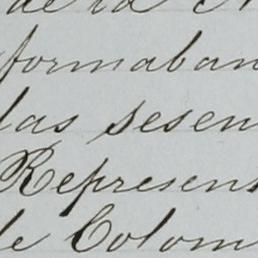 de la N
formaban
las sesen
Represent
de Colom